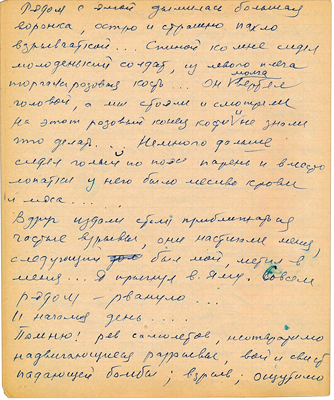 Рядом с ямой дымилась большая
воронка, остро и страшно пахло
взрывчаткой... Спиной ко мне сидел
молоденький солдат, из левого плеча
торчала розовая кость... Он мотал
головой, а мы стояли и смотрели
на этот розовый конец кости и не знали
что делать... Немного дальше
сидел голый по пояс парень и вместо
лопатки у него было месиво крови
и мяса...
Вдруг издали стали приближаться
частые взрывы, они настигали меня,
следующий был мой, метил в
меня... Я прыгнул в яму. Совсем
рядом – рвануло...
И начался день....
Помню! рев самолетов, неотвратимо
надвигающиеся разрывы, вой и свист
падающей бомбы; взрыв; ощутимо